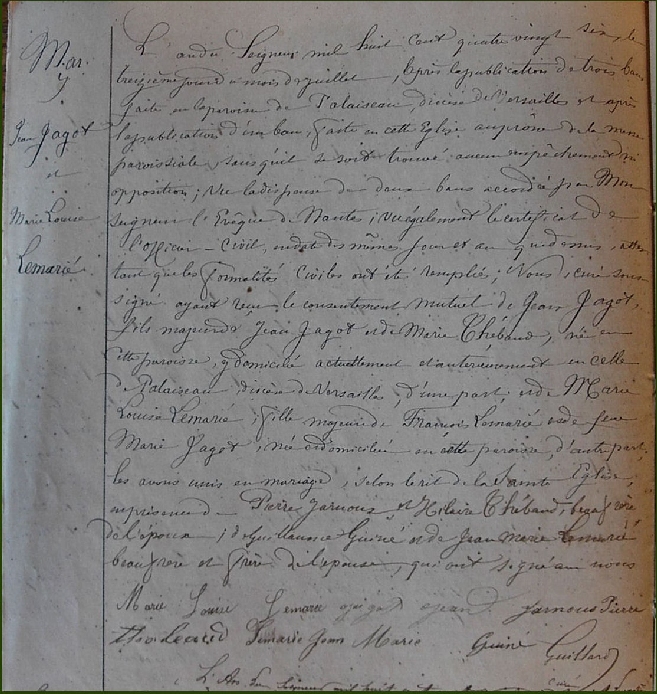 Mar.
Jean Jagot
et
Marie Louise
Lemarié
L'an du Seigneur mil huit cent quatre vingt six, le
treizième jour du mois de juillet, après la publication de trois bans
faite en la paroisse de Palaiseau, diocèse de Versailles et après
la publication d'un ban, faite en cette Eglise au prône de la messe
paroissiale sans qu'il se soit trouvé aucun empêchement ni
opposition; Vu la dispense de deux bans accordée par Mon
seigneur l'Evêque de Nantes; vu également le certificat de
l'officier-Civil, en date des mêmes jour et an que dessus, attes
tant que les formalités civiles ont été remplies; Nous curé sous
signé ayant reçu le consentement mutuel de Jean Jagot,
fils majeur de Jean Jagot et de Marie Thébaud, né en
cette paroisse, y domicilié actuellement et antérieurement en celle
de Palaiseau, diocèse de Versailles, d'une part; et de Marie
Louise Lemarié, fille majeure de François Lemarié et de feue
Marie Jagot, née et domiciliée en cette paroisse, d'autre part,
les avons unis en mariage, selon le rit de la Sainte Eglise,
en présence de Pierre Jarnoux, et Hilaire Thébaud, beaufrère
de l'époux; de Guillaume Guiné et de Jean Marie Lemarié
beau frère et frère de l'épouse, qui ont signé avec nous
Marie Louise Lemarie Jagot Jean Jarnoux Pierre
Lemarie Jean Marie Guiné Guillard
curé
L'An du Seigneur mil huit